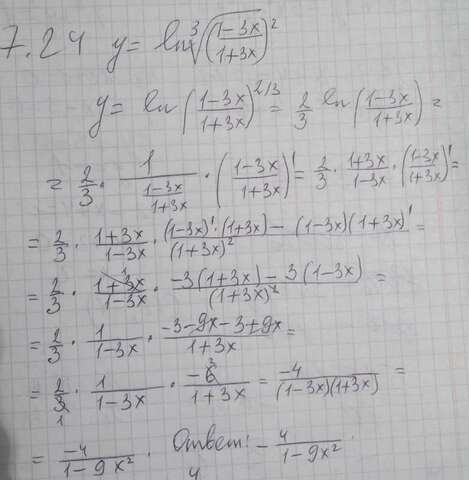 7.24 y = ln ∛((1-3x)/(1+3x))²
y = ln ((1-3x)/(1+3x))^(2/3) = 2/3 ln ((1-3x)/(1+3x)) =
= 2/3 · 1/((1-3x)/(1+3x)) · ((1-3x)/(1+3x))' = 2/3 · (1+3x)/(1-3x) · ((1-3x)/(1+3x))' =
= 2/3 · (1+3x)/(1-3x) · ((1-3x)' · (1+3x) - (1-3x)(1+3x)')/(1+3x)² =
= 2/3 · (1+3x)/(1-3x) · (-3(1+3x) - 3(1-3x))/(1+3x)² =
= 2/3 · 1/(1-3x) · (-3-9x-3+9x)/(1+3x) =
= 2/3 · 1/(1-3x) · (-6)/(1+3x) = -4/((1-3x)(1+3x)) =
= -4/(1-9x²) . Ответ: - 4/(1-9x²) .